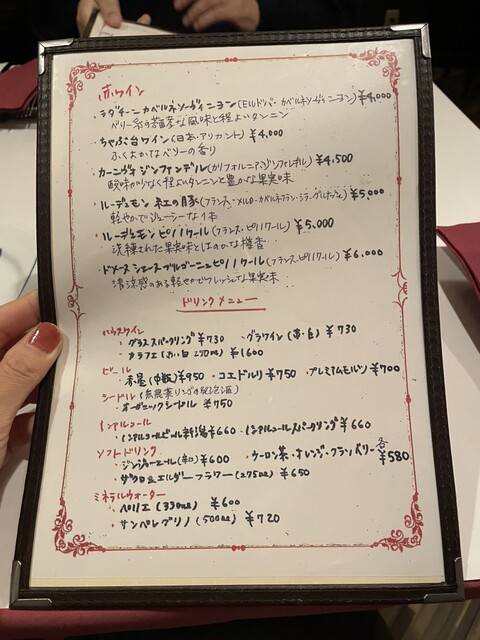 赤ワイン
・ラグデーニ カベルネソーヴィニヨン(モルドバ・カベルネソーヴィニヨン) ¥4,000
ベリー系の芳醇な風味と程よいタンニン
・ちゃぶ台ワイン(日本・アリカント) ¥4,000
ふくよかなベリーの香り
・カーニヴォ ジンファンデル(カリフォルニア・ジンファンデル) ¥4,500
酸味が少なく程よいタンニンと豊かな果実味
・ルーデュモン 紅の豚(フランス・メルロ・カベルネフラン・シラー・グルナッシュ) ¥5,000
軽やかでジューシーな1本
・ルーデュモン ピノノワール(フランス・ピノノワール) ¥5,000
洗練された果実味とほのかな樽香
・ドメーヌ シェーヌ ブルゴーニュピノノワール(フランス・ピノノワール) ¥6,000
清涼感のある軽やかでフレッシュな果実味
ドリンクメニュー
ハウスワイン
・グラススパークリング ¥730 ・グラスワイン(赤・白) ¥730
・カラフェ(赤い白 270ml) ¥1600
ビール
・赤星(中瓶) ¥950 ・コエドルリ ¥750 ・プレミアムモルツ ¥700
シードル(無農薬リンゴの発泡酒)
・オーガニックシードル ¥750
ノンアルコール
・ノンアルコールビール ¥660 ・ノンアルコールスパークリング ¥660
ソフトドリンク
・ジンジャーエール(辛口) ¥600 ・ウーロン茶・オレンジ・クランベリー 各¥580
・ザクロ&エルダーフラワー(275ml) ¥650
ミネラルウォーター
・ペリエ(330ml) ¥600
・サンペレグリノ(500ml) ¥720